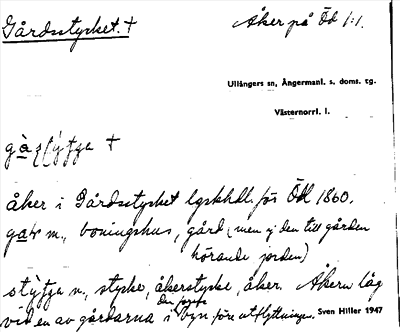 Gårdsstycket. +
Åker på Öd 1:1.
Ullångers sn, Ångermanl. s. doms. tg.
Västernorrl. l.
åker i Gårdsstycket lyskhdl. förs Öd 1860.
gaṛ m., boningshus, gård (men ej den till gården
hörande jorden)
n., stycke, åkerstycke, åker. Åkern låg
vid en av gårdarna i den förste byn före utflyttningen. Sven Hiller 1947